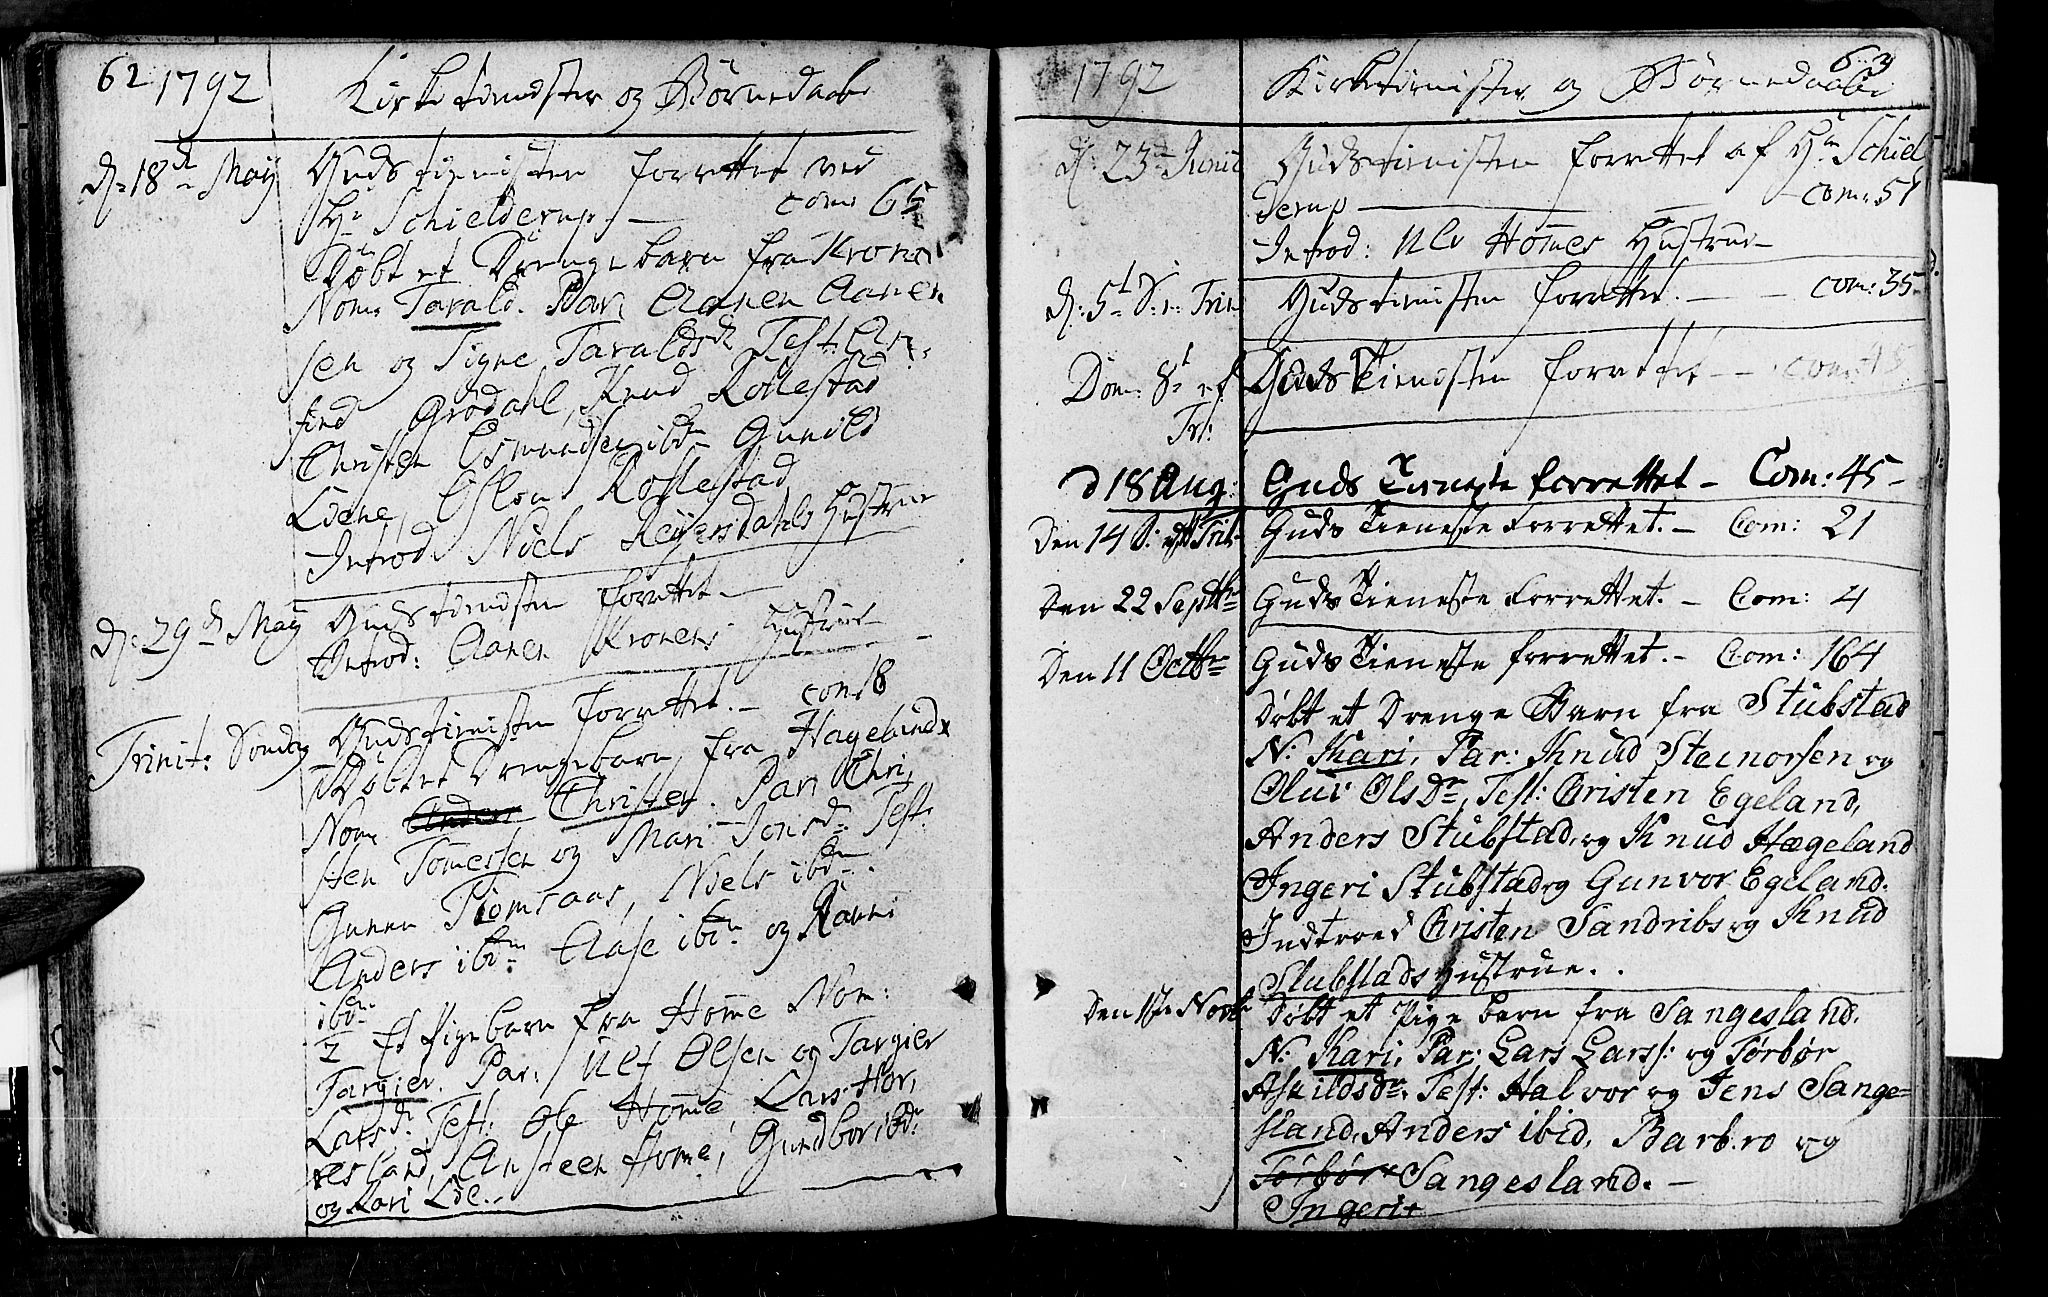 62 1792 Kirketienester og Börnedaab
D: 18de Maij Gudstienesten forrettet ved
Hr Schielderup. — com: 65
Döbt et Drengebarn fra Kronen
Nom: Tarald. Par: Aanen Aanen
sen og Signe Taraldsdr Test: Arn
find Grödahl, Knud Rollestad
Christen Osmundsen ibdm Gunild
Liene, Röllestad
Introd. Niels Reijersdahls Hustrue
D: 29de Maij Gudstienesten forrettet. —
Introd: Aanen Kronens Hustrue —
Trinit: Söndag Gudstienesten forrettet. — com: 18
Döbt et Drengebarn fra Hageland
Nom: Anders Christen. Par: Chri,
sten Tomessen og Mari Jonsdr. Test:
Gunen Tiomsaas, Niels ibdm.
Anders ibdm Aase ibdm og Ranni
ibdm
2 Et Pigebarn fra Hömme Nom:
Targier. Par: Ulf Olsen og Targier
Larsdr. Test: Ole Homme, Lars Hor,
resland, Ansteen Homme, Gundbor ibdm
og Kari Lie. —
1792 Kirketienister og Börnedaab 63
D: 23de Junii Gudstienisten forrettet af Hr Schiel
derup — com: 51
Introd: Ulv Hommes Hustrue —
D: 5t S: e: Trin: Gudstienisten forrettet. — — com: 35
Dom: 8t ef Tr: Guds Tienesten forrettet — — com: 45
D 18 Aug: Guds Tieneste forrettet — Com: 45 —
Den 14 S: eft Trit: Guds Tieneste Forrettet. — Com: 21
Den 22 Septbr Guds Tieneste Forrettet. — Com: 4
Den 11 Octbr Guds Tieneste forrettet. — Com: 164
Döbt et Drenge Barn fra Stubstad
N: Kari, Par: Knud Steinorsen og
Oluv Olsdr, Test: Cristen Egeland,
Anders Stubstad, og Knud Hægeland
Ingeri Stubstad og Gunvor Egeland.
Indtroed Cristen Sandribs og Knud
Stubstads Hustrue. .
Den 1ste Novbr Döbt et Pige barn fra Sangesland.
N: Kari, Par: Lars Larss: og Törbör
Askildsdr. Test: Halvor og Jens Sange=
sland, Anders ibid, Barbro og
Törbör Sangesland. —
Ingeri